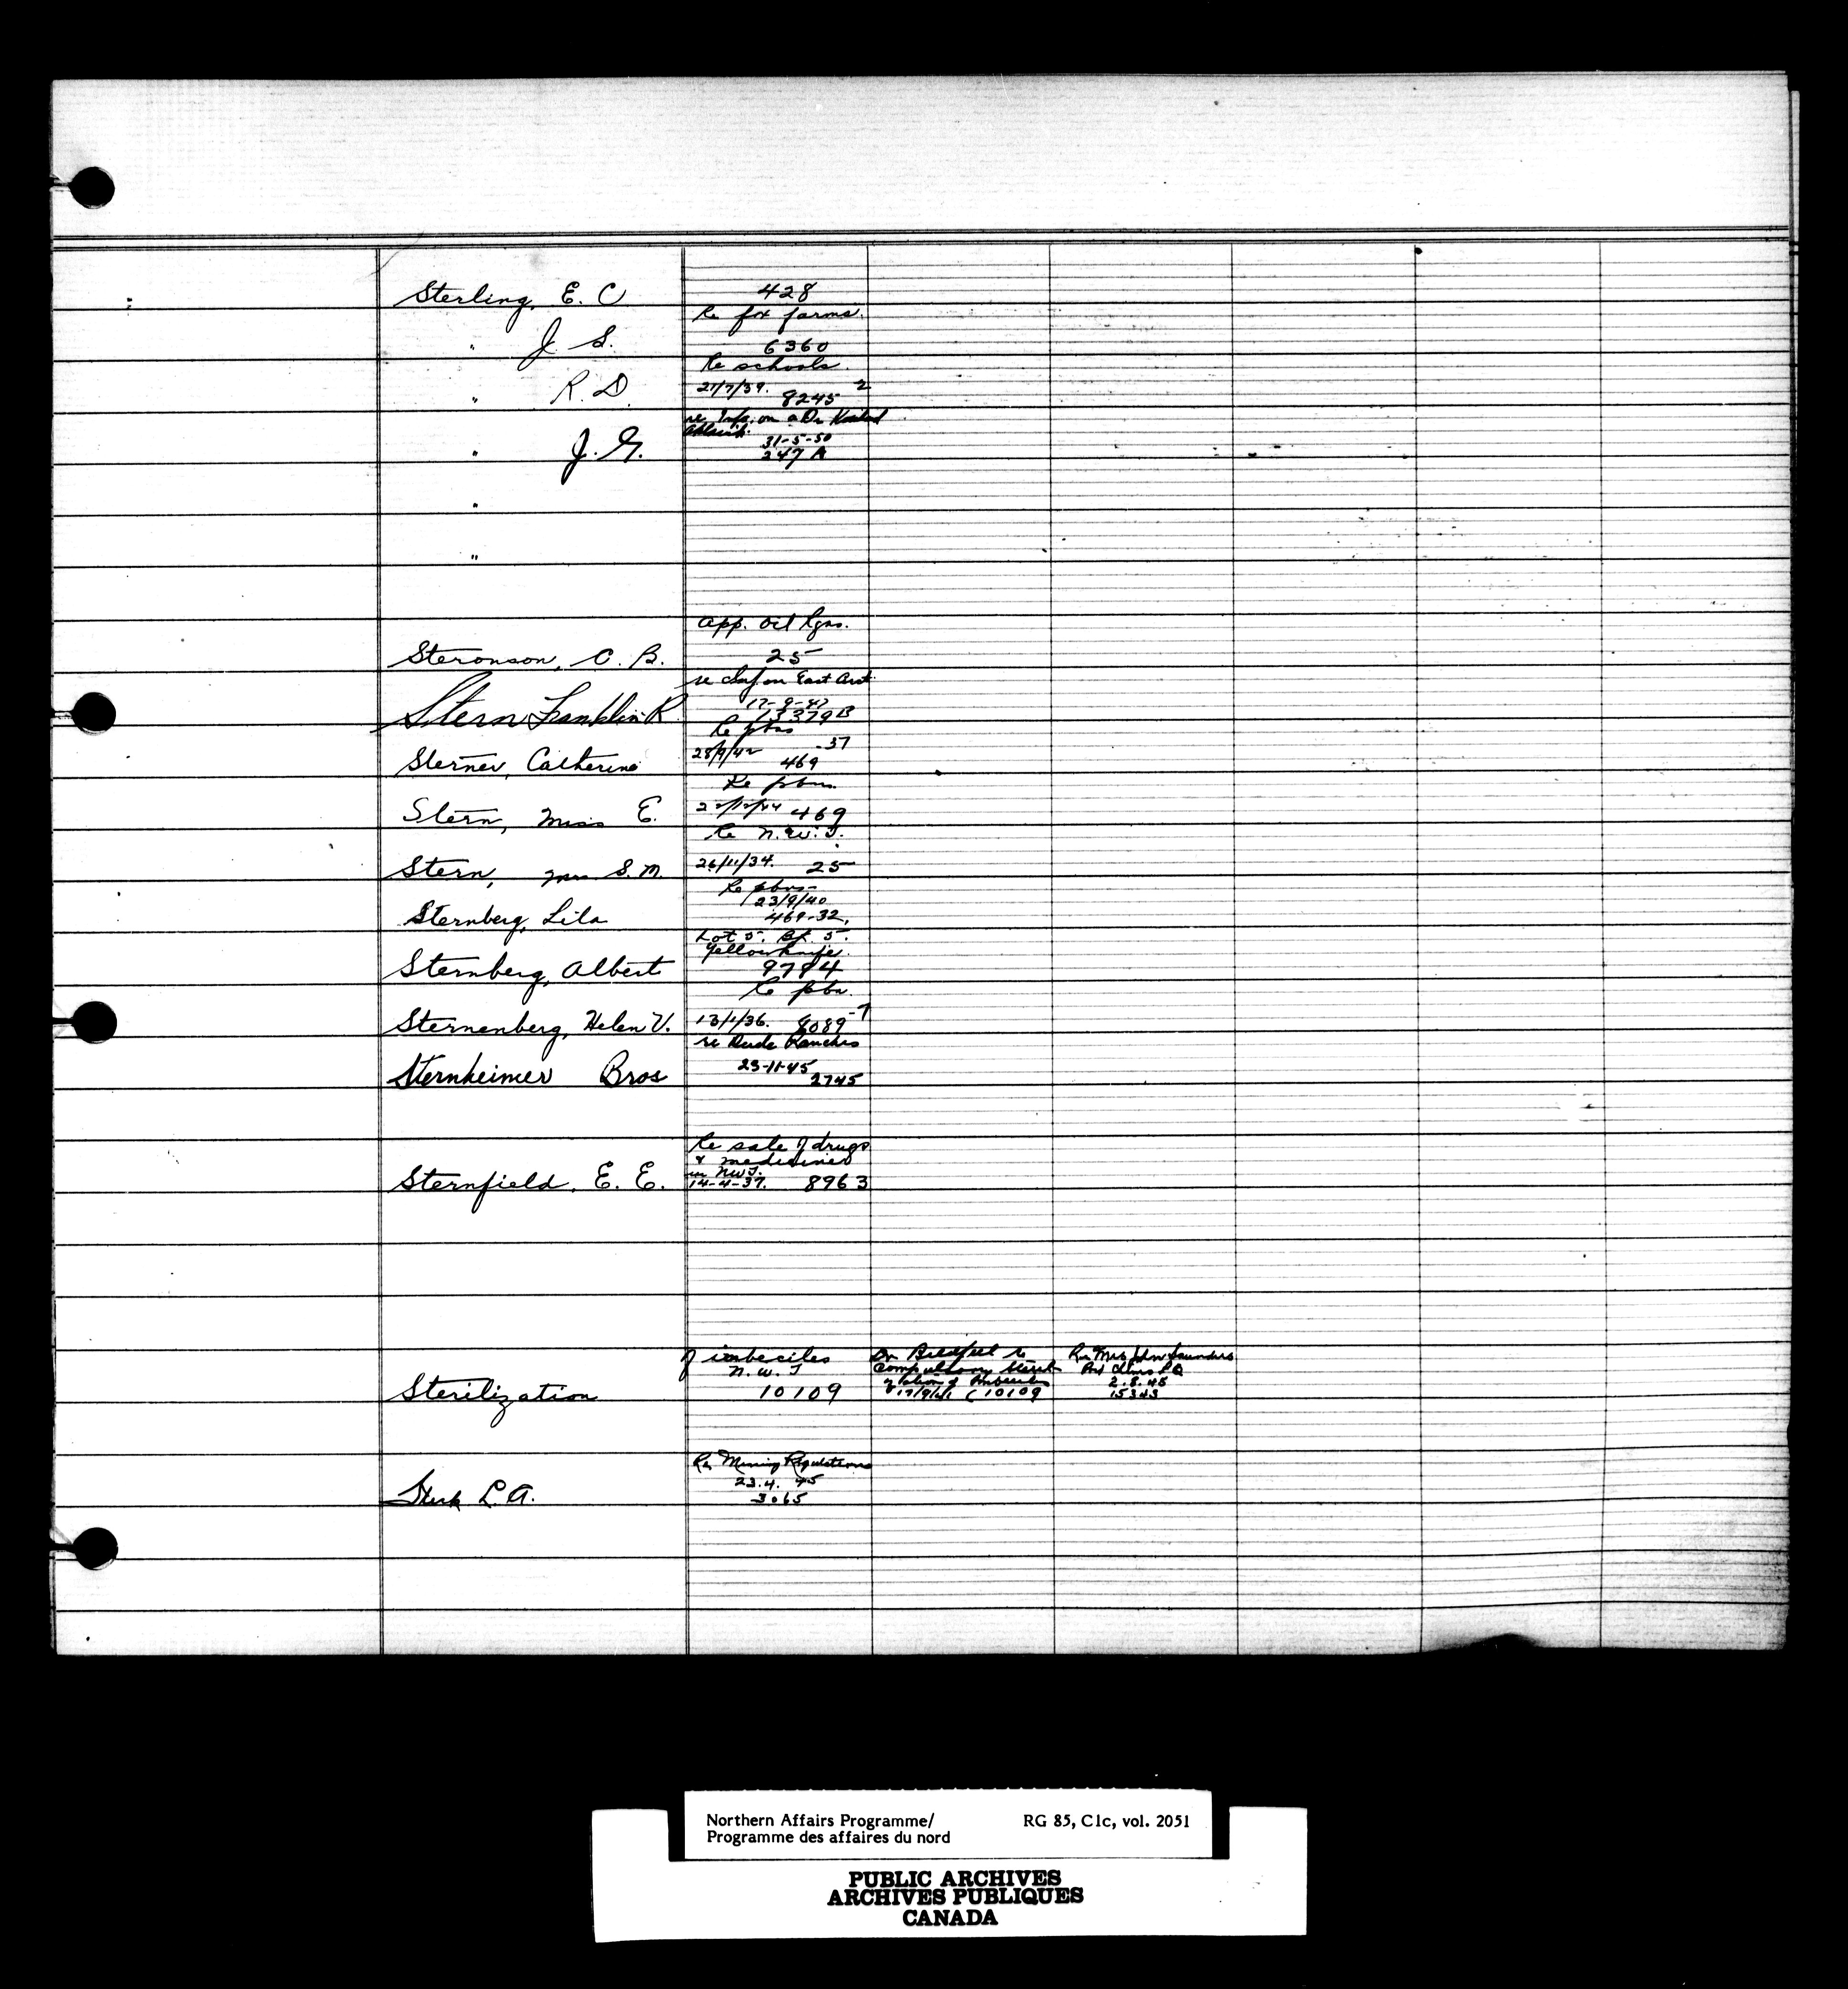 Sterling, E. C
428
Re fox farms.
" J. S.
6360
Re schools.
" R. D.
27/7/39. 8245 2
re Info. on a Dr
" J. G.
31-5-50
247 A
"
"
App. Oil Rgns.
Steronson, C. B.
25
re Inf on East Arct
Stern Franklin R
17-9-47
13379 B
Re pbns
Sterner, Catherine
28/9/42 469 -37
Re pbns.
Stern, Miss E.
22/12/44 469
Re N.W.T.
Stern, Mrs S. M.
26/11/34. 25
Re pbns-
23/9/40
Sternberg, Lila
469-32.
Lot 5. Bk. 5.
Yellowknife.
Sternberg, Albert
9784
Re pbn.
Sternenberg, Helen V.
13/1/36. 8089-7
re Dude Ranches
Sternheimer Bros
23-11-45
2745
Re sale of drugs
& medicines
in NWT.
Sternfield, E. E.
14-4-37. 8963
of imbeciles
N. W. T
Sterilization
10109
Dr re
Compulsory
of
17/9/41 (10109
Re Mrs John Saunders
P Q
2.8.45
15343
Re Mining Regulations
23.4. 45
L. A.
3065
Northern Affairs Programme/
Programme des affaires du nord
RG 85, C1c, vol. 2051
PUBLIC ARCHIVES
ARCHIVES PUBLIQUES
CANADA